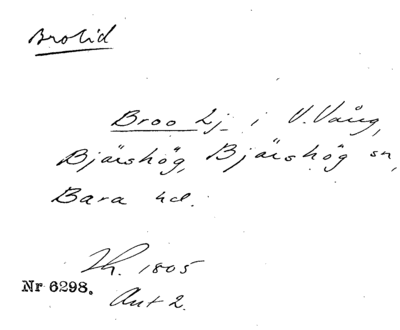 Brolid
Broo Lj i V. Vång,
Bjärshög, Bjärshög sn,
Bara hd.
Lh. 1805
Nr 6298.
Akt 2.